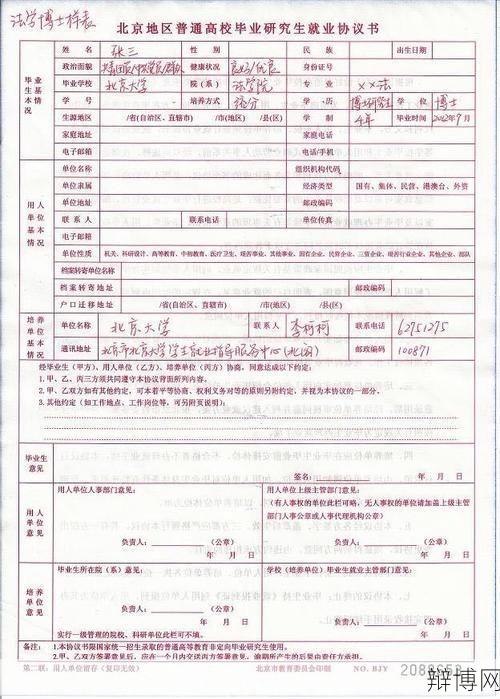 法学博士样表
北京地区普通高校毕业研究生就业协议书
毕业生基本情况
姓名 张三 性别 民族 出生日期
政治面貌 共青团员/中共党员/群众 健康状况 良好/优良 身份证号
毕业学校 北京大学 院(系) 法学院 专业 ××法
学号 培养方式 学历 博士研究生 学位 博士
生源地区 省(自治区、直辖市) 市(地区) 县(区) 学制 4年 毕业时间 2012年7月
家庭地址 家庭电话
电子邮箱 电话/手机
用人单位基本情况
单位名称 组织机构代码
单位隶属 经济类型 国有、集体、民营、港澳台、外资
单位地址 邮政编码
联系人 联系电话 单位传真
电子邮箱
单位性质 机关、科研设计、高等教育、中初教育、医疗卫生、艰苦事业、其他事业、国有企业、民营企业、三资企业、艰苦行业企业、其他企业、部队
档案转寄单位名称
档案转寄地址 邮政编码
户口迁移地址 省(自治区、直辖市) 市(地区) 县(区)
培养单位基本情况
单位名称 北京大学 联系人 李柯柯 联系电话 62751275
通讯地址 北京市北京大学学生就业指导服务中心(北阁) 邮政编码 100871
经毕业生(甲方)、用人单位(乙方)、培养单位(丙方)协商,同意达成以下约定:
1.甲、乙、丙三方须共同遵守本协议背面所列内容。
2.甲、乙双方如有其他约定,可本着平等协商、权利义务对等的原则另附约定,并视为本协议的一部分。
3.其他约定(如工作地点、工作岗位等,可另附页说明):
毕业生意见
签名: 年 月 日
用人单位意见
用人单位人事部门意见:
负责人: (公章)
年 月 日
用人单位上级主管部门意见:
(有人事权的单位此栏可略,无人事权的单位请加盖上级主管
部门人事公章或人事代理机构公章)
负责人: (公章)
年 月 日
培养单位意见
毕业生所在院(系)意见:
负责人: (公章)
年 月 日
实行一级管理的院校、科研单位此栏可不填。
学校(培养单位)毕业生就业主管部门意见:
负责人: (公章)
年 月 日
备注:
1.本协议书限国家统一招生录取的普通高等教育非定向毕业研究生使用。
2.甲、乙双方签署意见后,应在一个月内交送丙方签署意见,逾期所产生的后果由责任方承担。
第二联:用人单位留存(复印无效) 北京市教育委员会印制 NO. BJY
辩博网